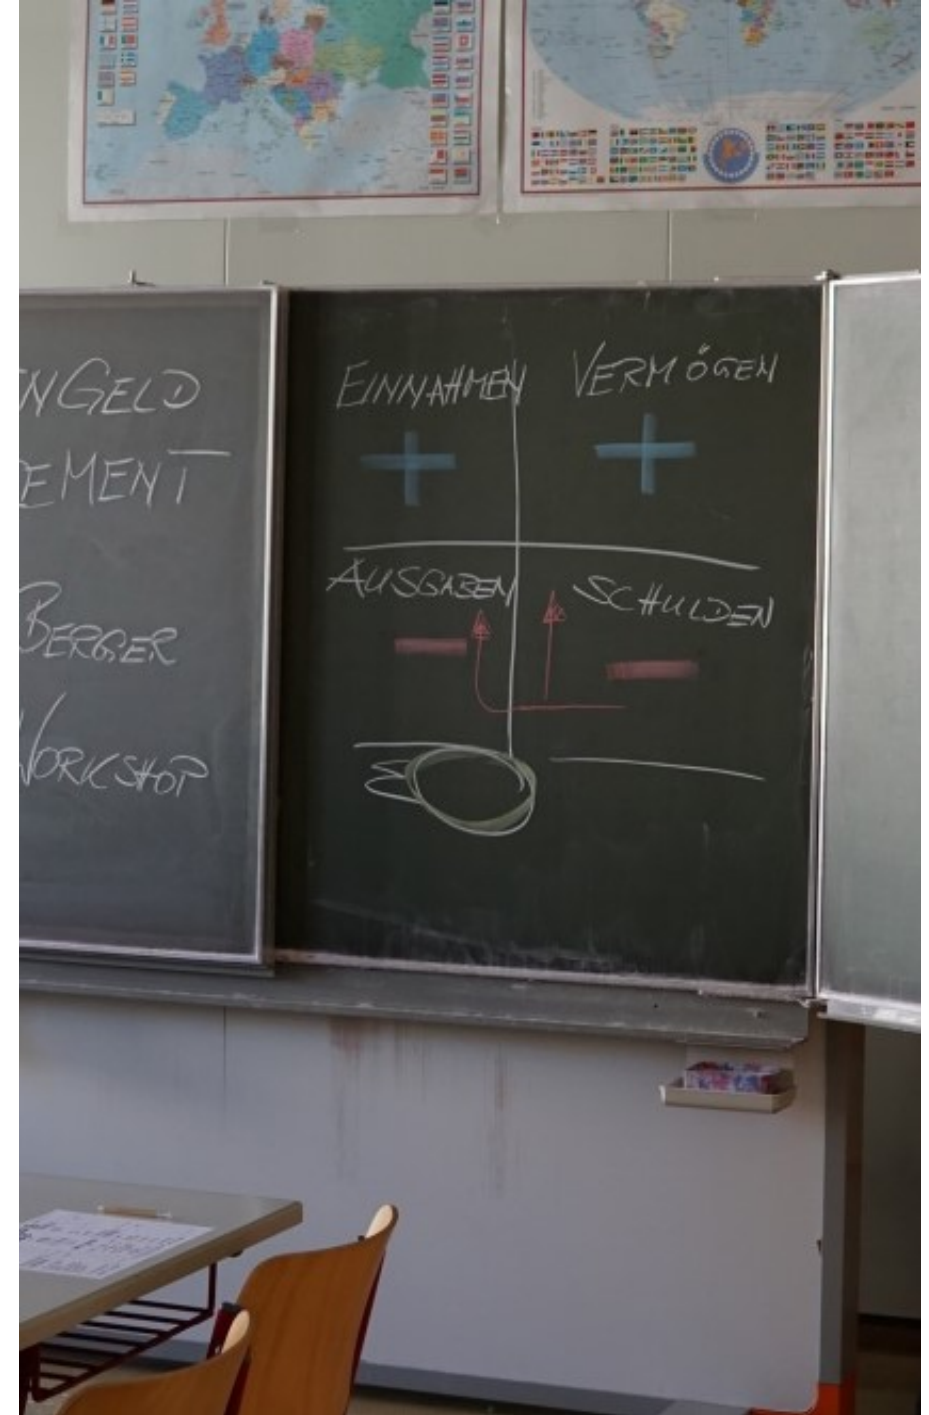 NGELD
EMENT
BERGER
WORKSHOP
EINNAHMEN
VERMÖGEN
+
+
AUSGABEN
SCHULDEN
-
-